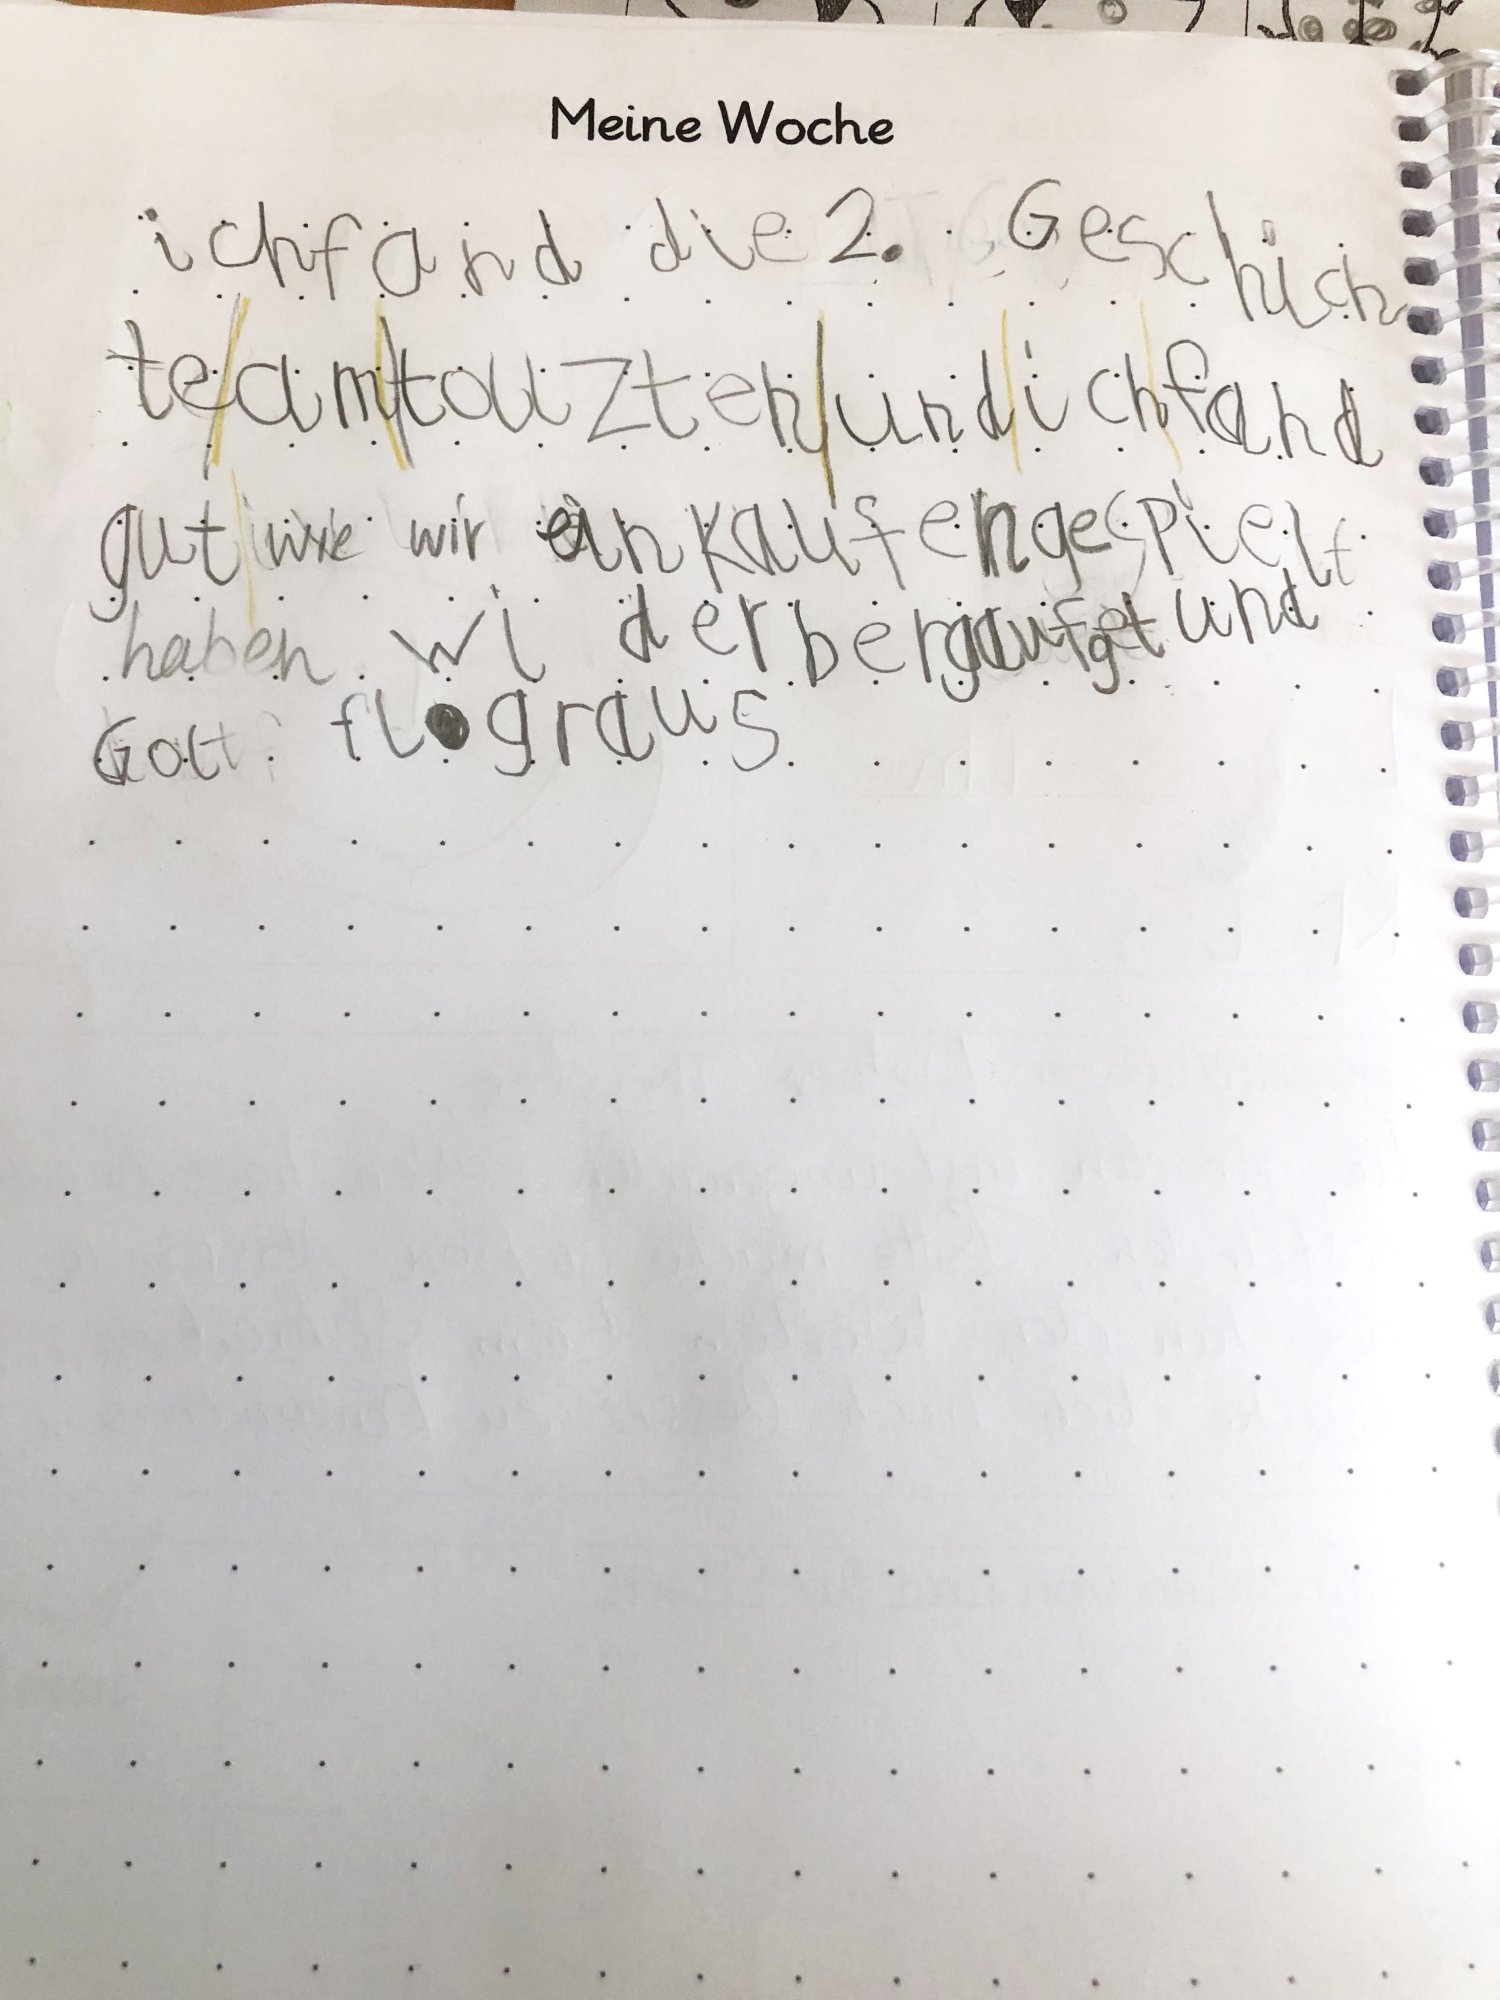 Meine Woche
ichfand die 2. Geschich
te/am/touzten/und/ich/fand
gut/wie wir einkaufengespielt
haben wi derbergaufget und
Gott flograus